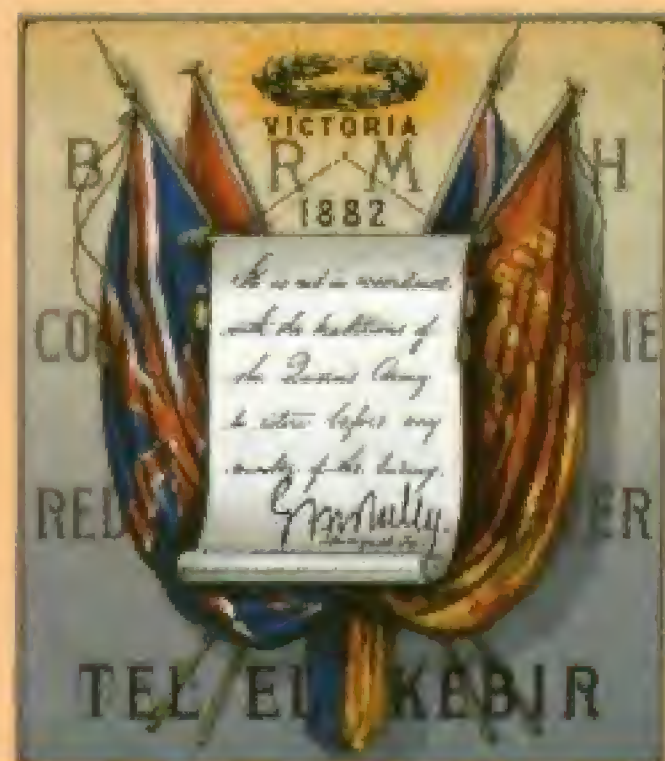 VICTORIA
B R M H
1882
It is not in accordance
with the traditions of
the Queens Army
to retire before any
number of the Enemy.
CO NIE
RED ER
TEL EL KEBIR